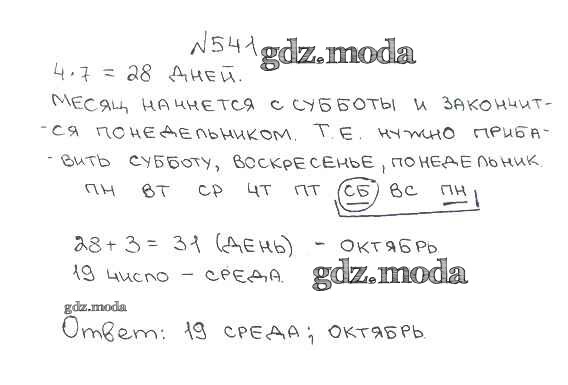 №541
gdz.moda
4·7 = 28 ДНЕЙ.
МЕСЯЦ НАЧНЕТСЯ С СУББОТЫ И ЗАКОНЧИТ-
-СЯ ПОНЕДЕЛЬНИКОМ. Т.Е. НУЖНО ПРИБА-
-ВИТЬ СУББОТУ, ВОСКРЕСЕНЬЕ, ПОНЕДЕЛЬНИК.
ПН ВТ СР ЧТ ПТ СБ ВС ПН
28 + 3 = 31 (ДЕНЬ) - ОКТЯБРЬ
19 ЧИСЛО - СРЕДА.
gdz.moda
gdz.moda
Ответ: 19 СРЕДА; ОКТЯБРЬ.